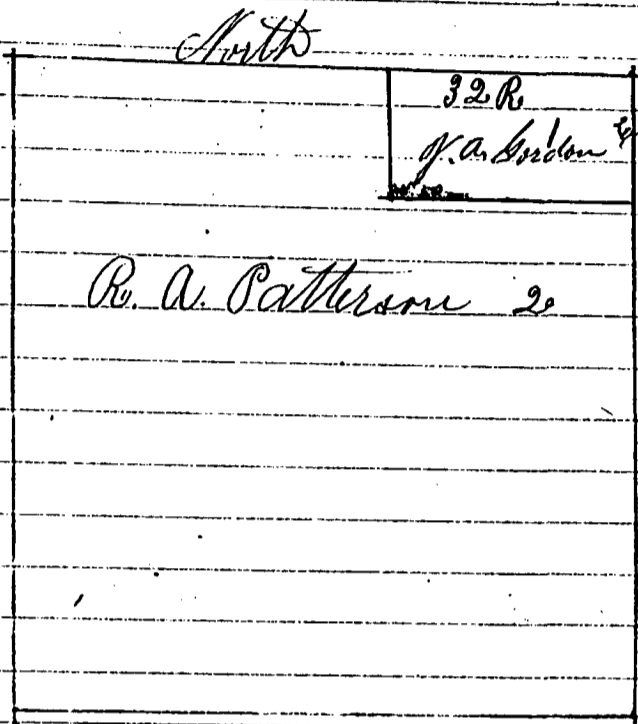 North
32 R
J. A. Gordon
R. A. Patterson 2